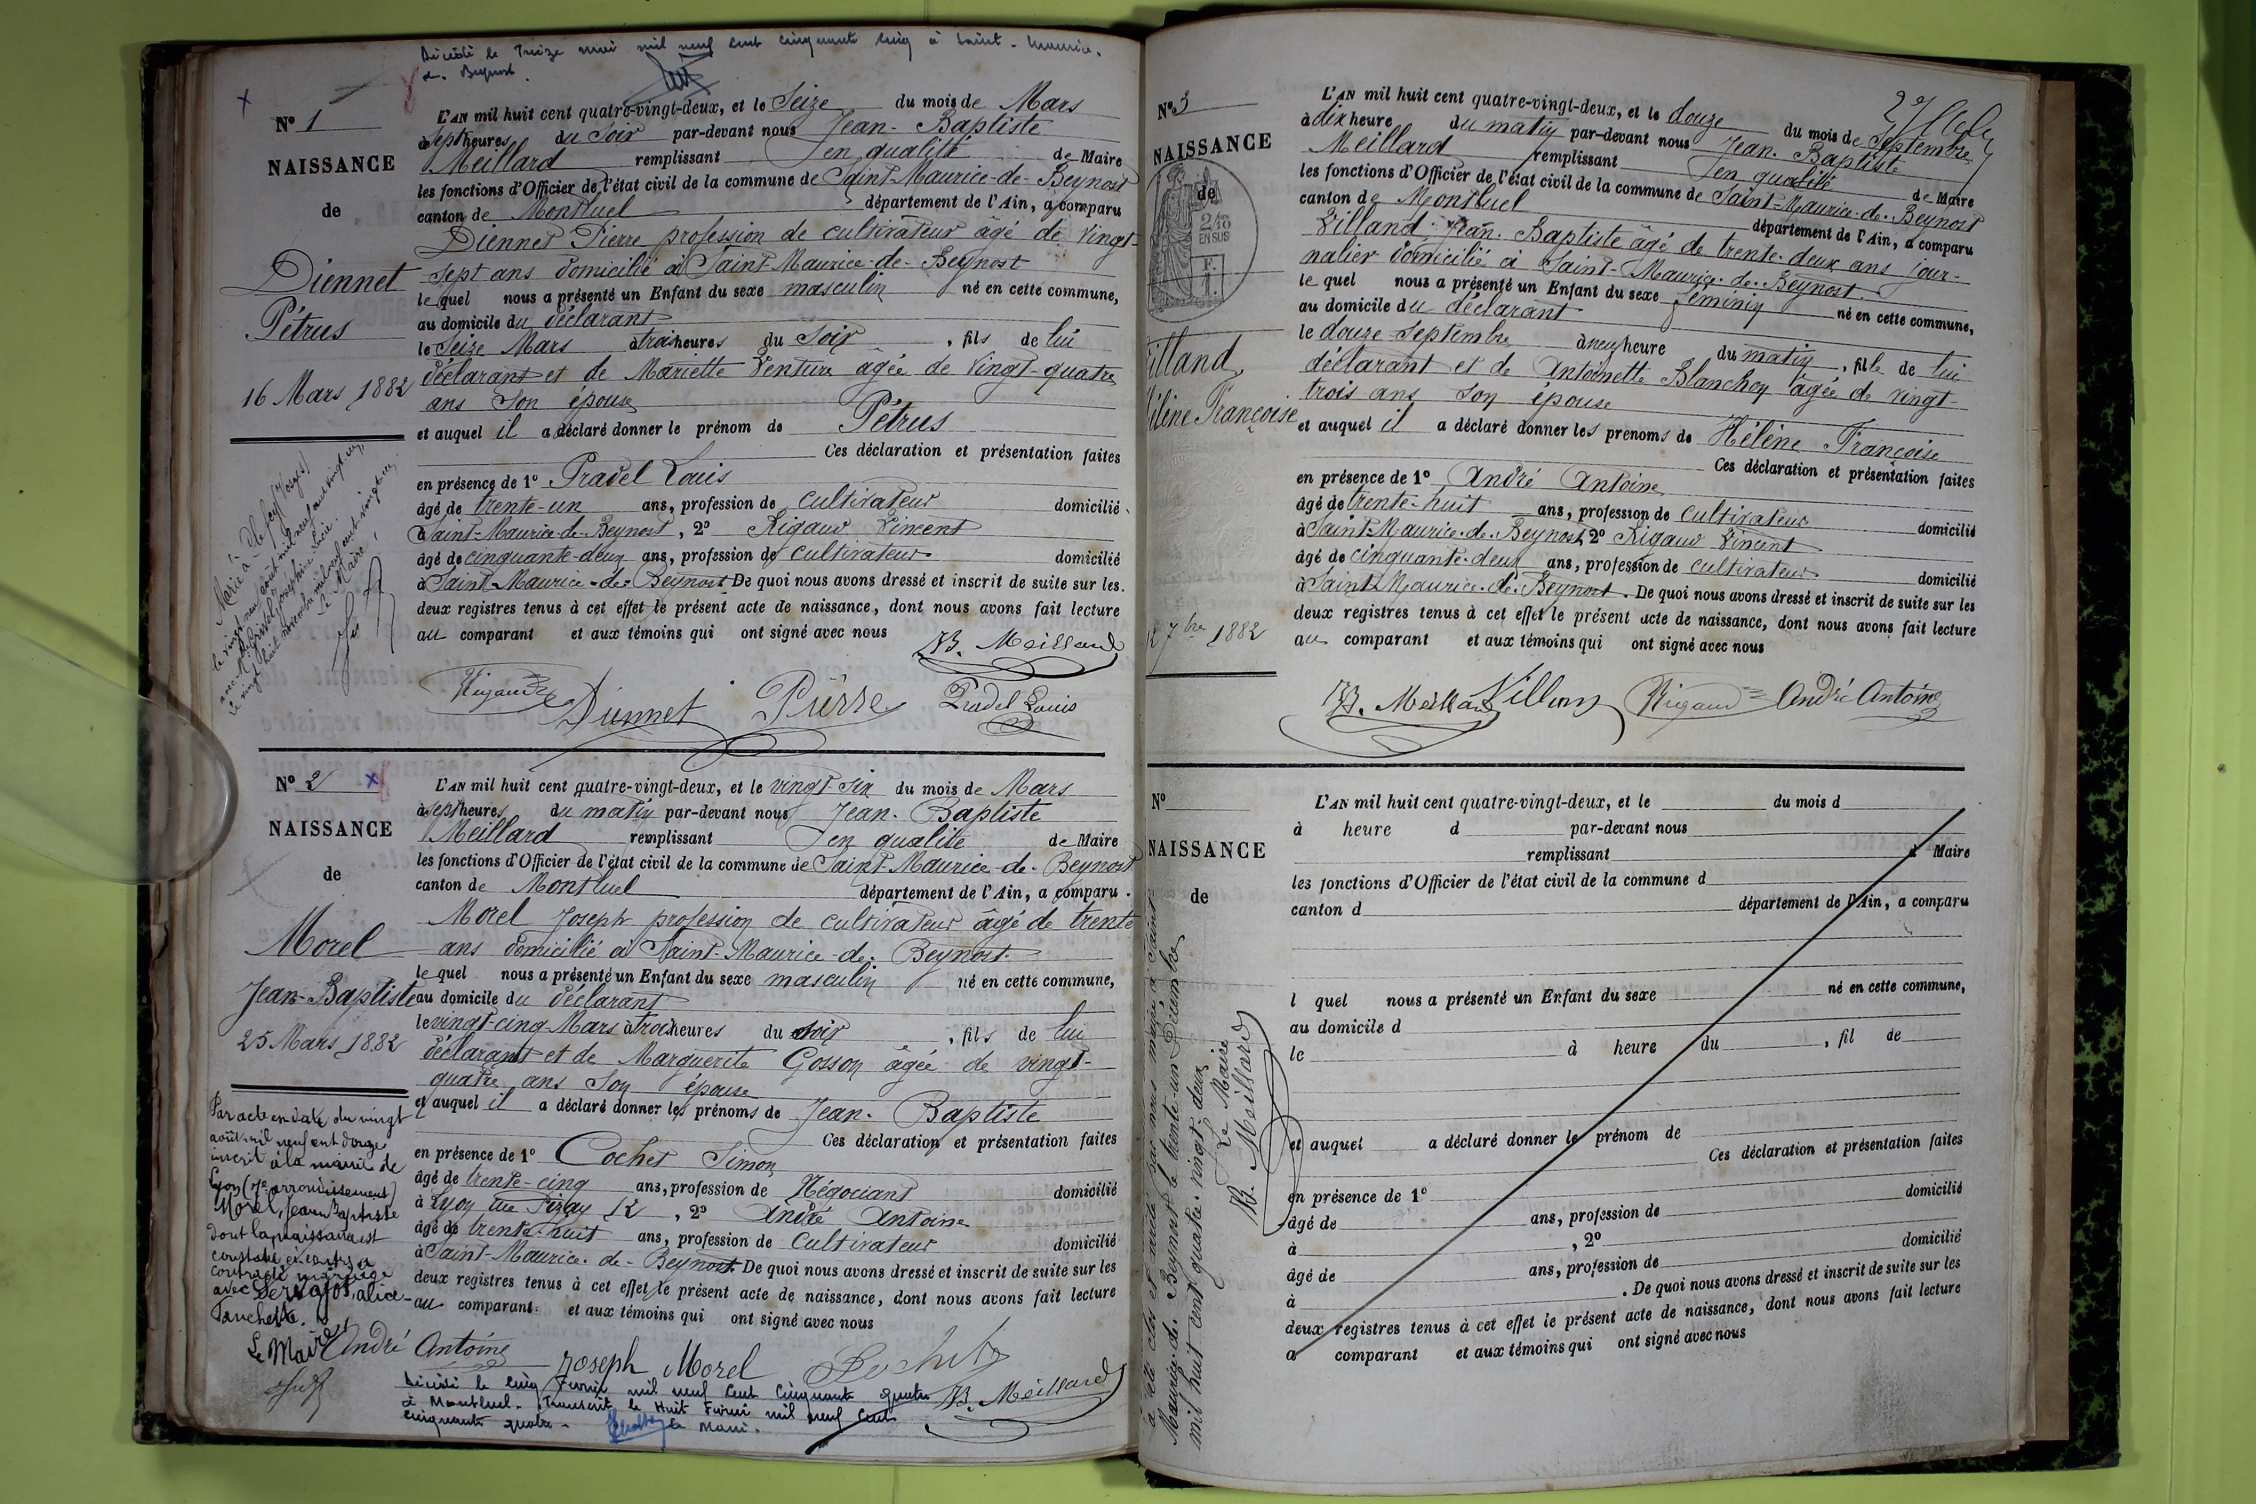 Décédé le Treize mai mil neuf cent cinquante cinq à Saint-Maurice-
de-Beynost.
N° 1
NAISSANCE
de
Diennet
Pétrus
16 Mars 1882
L'AN mil huit cent quatre-vingt-deux, et le Seize du mois de Mars
à sept heures du Soir par-devant nous Jean-Baptiste
Meillard remplissant en qualité de Maire
les fonctions d'Officier de l'état civil de la commune de Saint-Maurice-de-Beynost
canton de Montluel département de l'Ain, a comparu
Diennet Pierre profession de cultivateur âgé de Vingt-
sept ans domicilié à Saint-Maurice-de-Beynost
le quel nous a présenté un Enfant du sexe masculin né en cette commune,
au domicile du déclarant
le Seize Mars à trois heures du Soir, fils de lui
déclarant et de Mariette Ventura âgée de Vingt-quatre
ans son épouse
et auquel il a déclaré donner le prénom de Pétrus
Ces déclaration et présentation faites
en présence de 1° Pradel Louis
âgé de trente-un ans, profession de cultivateur domicilié
à Saint-Maurice-de-Beynost, 2° Rigaud Vincent
âgé de cinquante-deux ans, profession de cultivateur domicilié
à Saint-Maurice-de-Beynost De quoi nous avons dressé et inscrit de suite sur les
deux registres tenus à cet effet le présent acte de naissance, dont nous avons fait lecture
au comparant et aux témoins qui ont signé avec nous
JB. Meillard
Rigaud Diennet Pierre Pradel Louis
Marié à (Vosges)
le vingt neuf août mil neuf cent vingt un
avec Joséphine Lucie.
le vingt huit novembre mil neuf cent vingt un
Le Maire,
N° 2
NAISSANCE
de
Morel
Jean-Baptiste
25 Mars 1882
L'AN mil huit cent quatre-vingt-deux, et le vingt-six du mois de Mars
à sept heures du matin par-devant nous Jean-Baptiste
Meillard remplissant en qualité de Maire
les fonctions d'Officier de l'état civil de la commune de Saint-Maurice-de-Beynost
canton de Montluel département de l'Ain, a comparu
Morel Joseph profession de cultivateur âgé de trente
ans domicilié à Saint-Maurice-de-Beynost.
le quel nous a présenté un Enfant du sexe masculin né en cette commune,
au domicile du déclarant
le vingt-cinq Mars à trois heures du soir, fils de lui
déclarant et de Marguerite Gosson âgée de vingt-
quatre ans son épouse
et auquel il a déclaré donner les prénoms de Jean-Baptiste
Ces déclaration et présentation faites
en présence de 1° Cochet Simon
âgé de trente-cinq ans, profession de Négociant domicilié
à Lyon rue Pizay 12, 2° André Antoine
âgé de trente-huit ans, profession de cultivateur domicilié
à Saint-Maurice-de-Beynost De quoi nous avons dressé et inscrit de suite sur les
deux registres tenus à cet effet le présent acte de naissance, dont nous avons fait lecture
au comparant et aux témoins qui ont signé avec nous
André Antoine Joseph Morel
JB. Meillard
Par acte en date du vingt
août mil neuf cent douze
inscrit à la mairie de
Lyon (7e arrondissement)
Morel, Jean Baptiste
dont la naissance est
constatée ci-contre a
contracté mariage
avec Servajos, alice-
Fanchette.
Le Maire,
Décédé le cinq Février mil neuf cent cinquante quatre
à Montluel. Transcrit le Huit Février mil neuf cent
cinquante quatre.
Le Maire.
N° 3
NAISSANCE
de
2/10
EN SUS
Villand
Hélène Françoise
12 7bre 1882
L'AN mil huit cent quatre-vingt-deux, et le douze du mois de Septembre
à dix heure du matin par-devant nous Jean-Baptiste
Meillard remplissant en qualité de Maire
les fonctions d'Officier de l'état civil de la commune de Saint-Maurice-de-Beynost
canton de Montluel département de l'Ain, a comparu
Villand Jean-Baptiste âgé de trente-deux ans jour-
nalier domicilié à Saint-Maurice-de-Beynost.
le quel nous a présenté un Enfant du sexe féminin né en cette commune,
au domicile du déclarant
le douze Septembre à neuf heure du matin, fille de lui
déclarant et de Antoinette Blanchon âgée de vingt-
trois ans son épouse
et auquel il a déclaré donner les prénoms de Hélène Françoise
Ces déclaration et présentation faites
en présence de 1° André Antoine
âgé de trente-huit ans, profession de cultivateur domicilié
à Saint-Maurice-de-Beynost, 2° Rigaud Vincent
âgé de cinquante-deux ans, profession de cultivateur domicilié
à Saint-Maurice-de-Beynost. De quoi nous avons dressé et inscrit de suite sur les
deux registres tenus à cet effet le présent acte de naissance, dont nous avons fait lecture
au comparant et aux témoins qui ont signé avec nous
JB. Meillard Rigaud André Antoine
N°
NAISSANCE
de
L'AN mil huit cent quatre-vingt-deux, et le du mois d
à heure d par-devant nous
remplissant d Maire
les fonctions d'Officier de l'état civil de la commune d
canton d département de l'Ain, a comparu
l quel nous a présenté un Enfant du sexe né en cette commune,
au domicile d
le à heure du , fil de
et auquel a déclaré donner le prénom de
Ces déclaration et présentation faites
en présence de 1°
âgé de ans, profession de domicilié
à , 2°
âgé de ans, profession de domicilié
à . De quoi nous avons dressé et inscrit de suite sur les
deux registres tenus à cet effet le présent acte de naissance, dont nous avons fait lecture
a comparant et aux témoins qui ont signé avec nous
a été clos et arrêté par nous maire à Saint
Maurice-de-Beynost le trente-un Décembre
mil huit cent quatre-vingt-deux
Le Maire
JB. Meillard